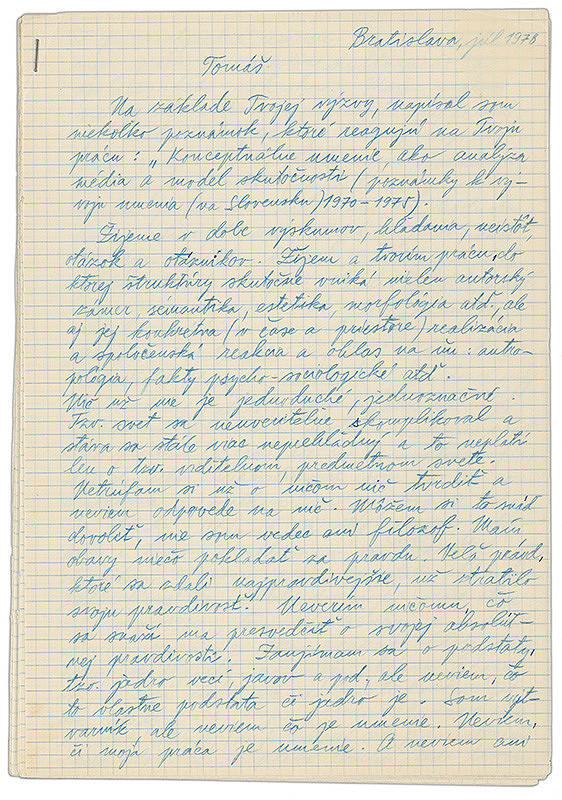 Bratislava, júl 1978
Tomáš
Na základe Tvojej výzvy, napísal som
niekoľko poznámok, ktoré reagujú na Tvoju
prácu: „Konceptuálne umenie, ako analýza
média a model skutočnosti (poznámky k vý-
voju umenia (na Slovensku) 1970-1975).
Žijeme v dobe výskumov, hľadania, neistôt,
otázok a otáznikov. Žijem a tvorím prácu, do
ktorej štruktúry skutočne vniká nielen autorský
zámer, sémantika, estetika, morfológia atď. ale
aj jej konkrétna (v čase a priestore) realizácia
a spoločenská reakcia a ohlas na ňu: antro-
pológia, fakty psycho-sociologické atď.
Nič už nie je jednoduché, jednoznačné.
Tzv. svet sa neuveriteľne skomplikoval a
stáva sa stále viac neprehľadný a to neplatí
len o tzv. viditeľnom, predmetnom svete.
Netrúfam si už o ničom nič tvrdiť a
neviem odpovede na nič. Môžem si to snáď
dovoliť, nie som vedec ani filozof. Mám
obavy niečo pokladať za pravdu. Veľa právd,
ktoré sa zdali najpravdivejšie, už stratilo
svoju pravdivosť. Neverím ničomu, čo
sa snaží ma presvedčiť o svojej absolút-
nej pravdivosti. Zaujímam sa o podstaty,
tzv. jadro vecí, javov a pod., ale neviem, čo
to vlastne podstata či jadro je. Som výt-
varník, ale neviem čo je umenie. Neviem,
či moja práca je umenie. A neviem ani